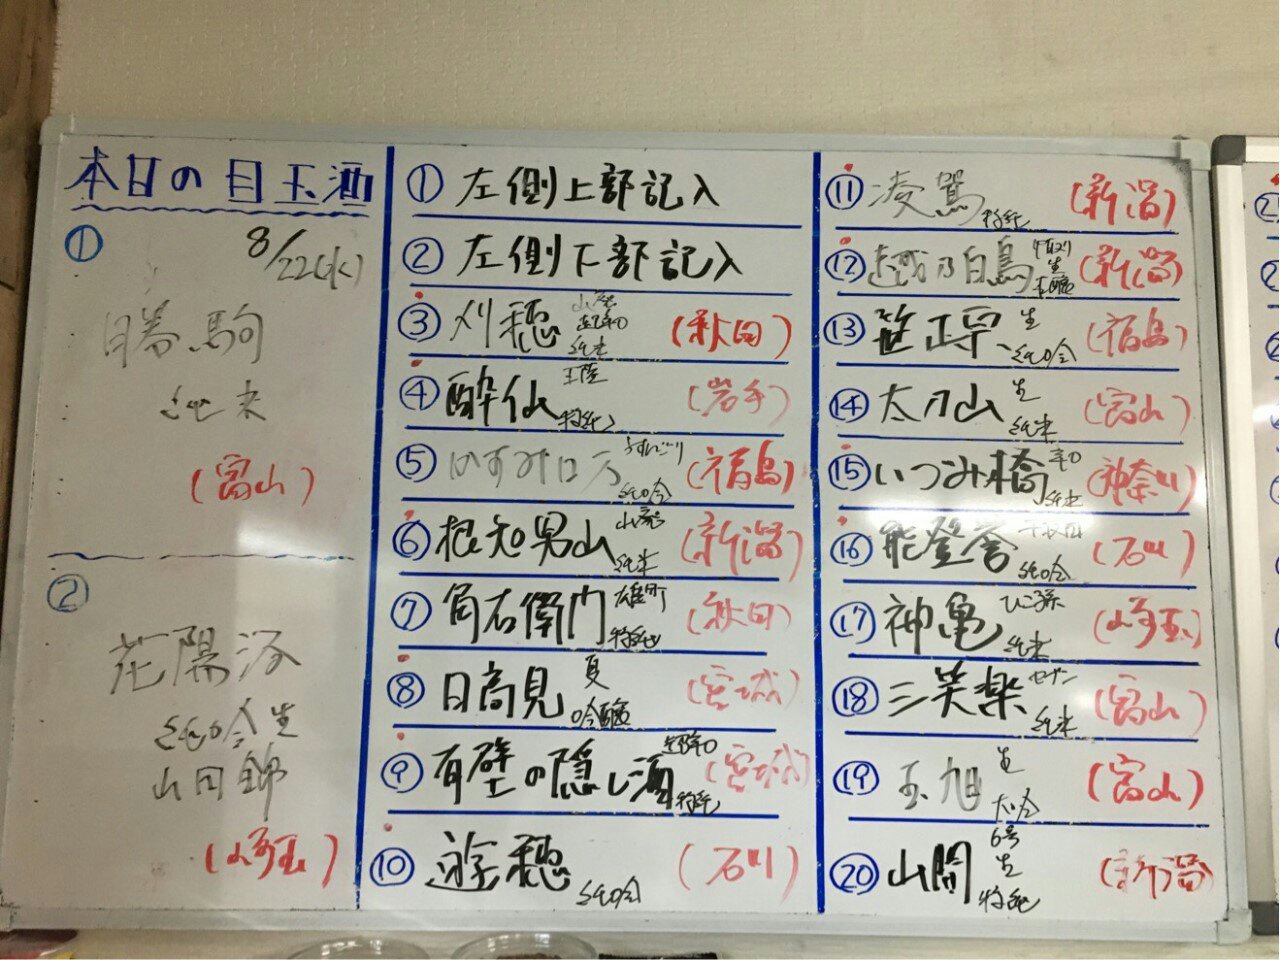 本日の目玉酒
① 8/22(水)
勝駒
純米
(富山)
②
花陽浴
純吟生
山田錦
(埼玉)
① 左側上部記入
② 左側下部記入
③ 刈穂 山廃 超辛口 純米 (秋田)
④ 酔仙 特純 (岩手)
⑤ かすみロ万 うすにごり 純吟 (福島)
⑥ 根知男山 純米 (新潟)
⑦ 角右衛門 雄町 特純 (秋田)
⑧ 日高見 夏 吟醸 (宮城)
⑨ 有壁の隠し酒 超辛口 特純 (宮城)
⑩ 遊穂 純吟 (石川)
⑪ 凌駕 特純 (新潟)
⑫ 越乃白鳥 生 (新潟)
⑬ 笹正宗 生 純吟 (福島)
⑭ 太刀山 生 純米 (富山)
⑮ いづみ橋 辛口 純米 (神奈川)
⑯ 能登誉 純吟 (石川)
⑰ 神亀 ひこ孫 純米 (埼玉)
⑱ 三笑楽 セブン 純米 (富山)
⑲ 玉旭 生 大吟 (富山)
⑳ 山間 6号 生 特純 (新潟)